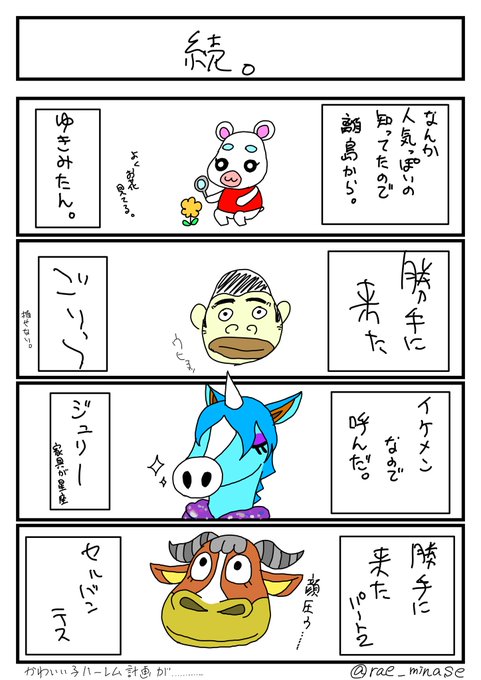 続。
なんか
人気っぽいの
知ってたので
離島から。
よくお花
見てる。
ゆきみたん。
勝手に
来た
ウヒョッ
ごりっぺ
推せない。
イケメン
なので
呼んだ。
ジュリー
家具が星座
勝手に
来た
パート2
顔圧っ……
セルバン
テス
かわいい子ハーレム計画が…………
@rae_minase